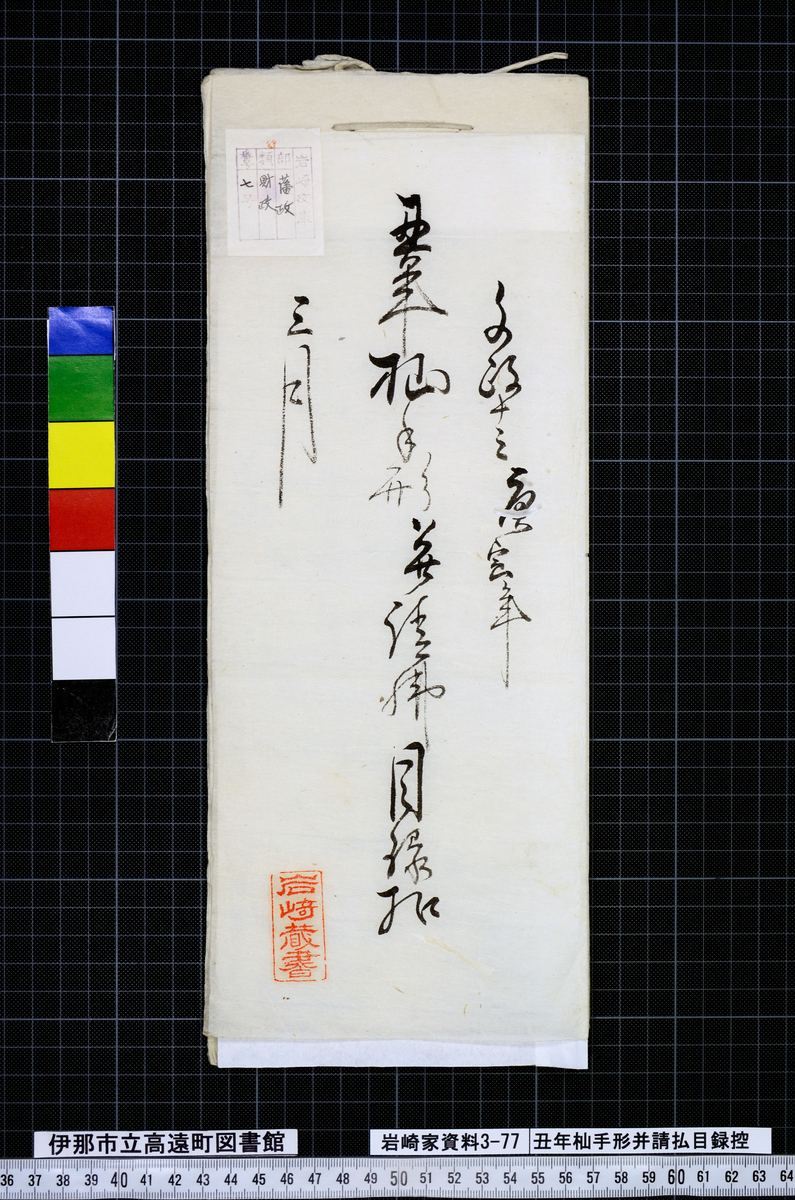 文政十三庚
寅年
丑年杣手形并請払目録控
三月
岩崎蔵書
部 藩政
類 財政
號 七
伊那市立高遠町図書館
岩崎家資料3-77
丑年杣手形并請払目録控
36 37 38 39 40 41 42 43 44 45 46 47 48 49 50 51 52 53 54 55 56 57 58 59 60 61 62 63 64